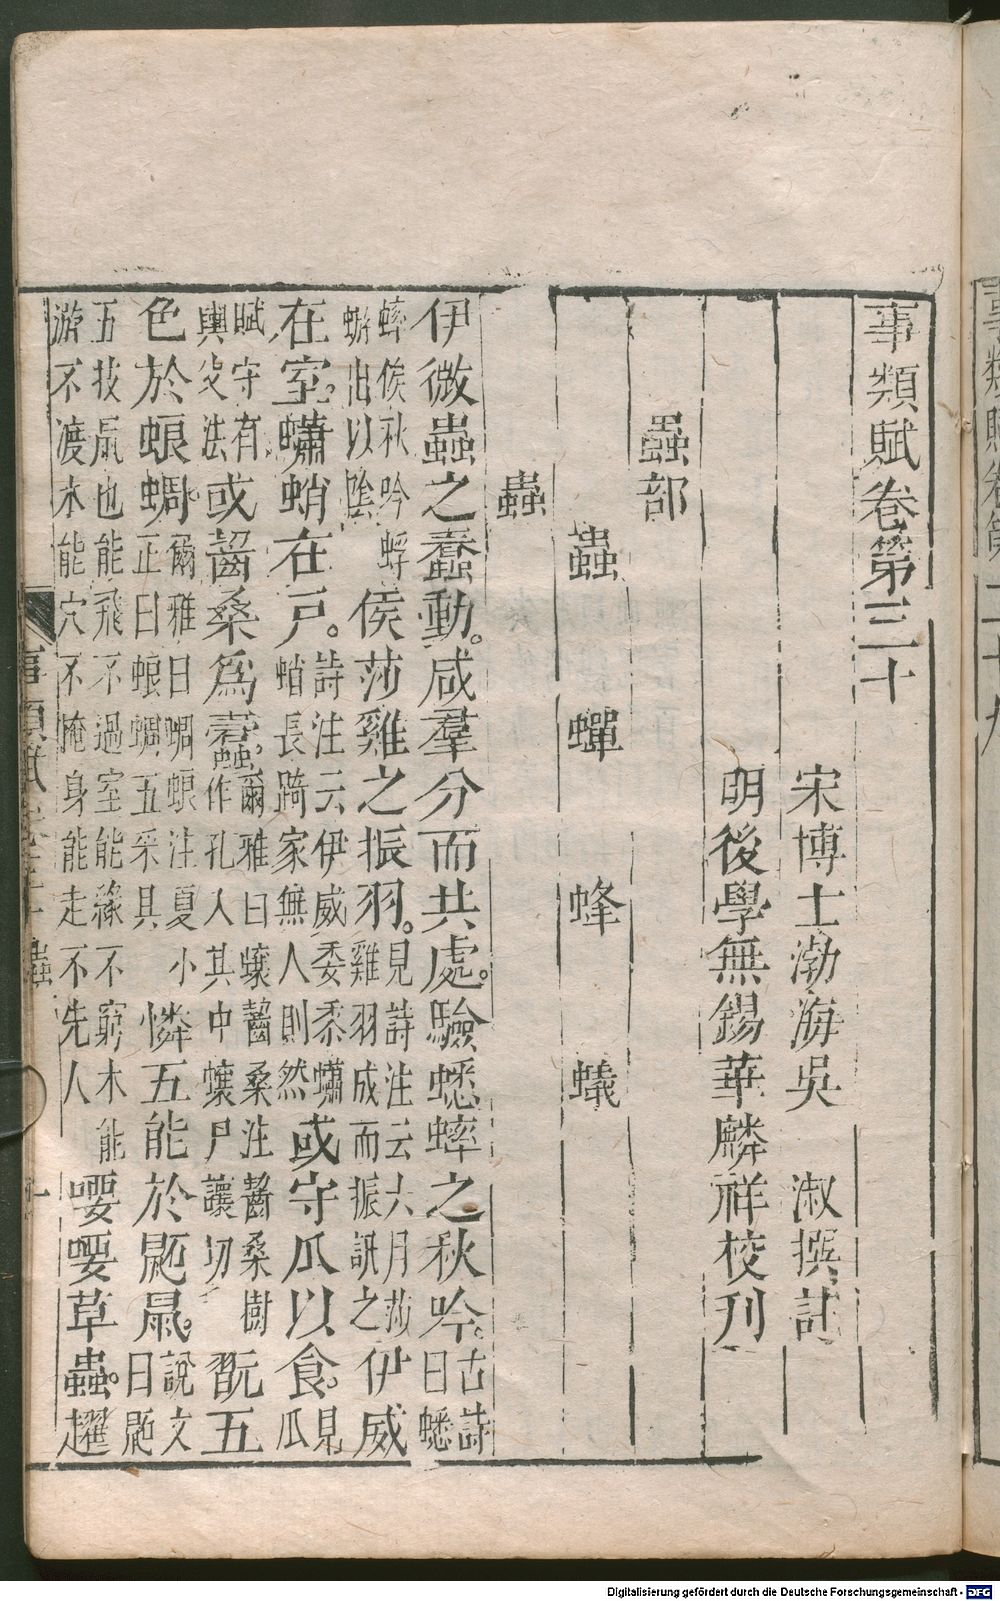 事類賦卷第三十
宋博士渤海吳　淑撰註
明後學無錫華麟祥校刊
蟲部
蟲　蟬　蜂　蟻
蟲
伊微蟲之蠢動。咸羣分而共處。驗蟋蟀之秋吟。古詩曰蟋
蟀俟秋吟蜉蝣出以陰侯莎雞之振羽。見詩注云六月莎雞羽成而振訊之伊威
在室。蠨蛸在戶。詩注云伊威委黍蠨蛸長踦家無人則然或守瓜以食。見瓜
賦守有輿父法或齧桑爲蠹。爾雅曰蠰齧桑注齧桑樹作孔入其中蠰尸讓切翫五
色於蜋蜩。爾雅曰蜩蜋注夏小正曰蜋蜩五采具憐五能於鼫鼠。說文曰鼫
五技鼠也能飛不過室能緣不窮木能游不渡水能穴不掩身能走不先人喓喓草蟲。趯
Digitalisierung gefördert durch die Deutsche Forschungsgemeinschaft - DFG